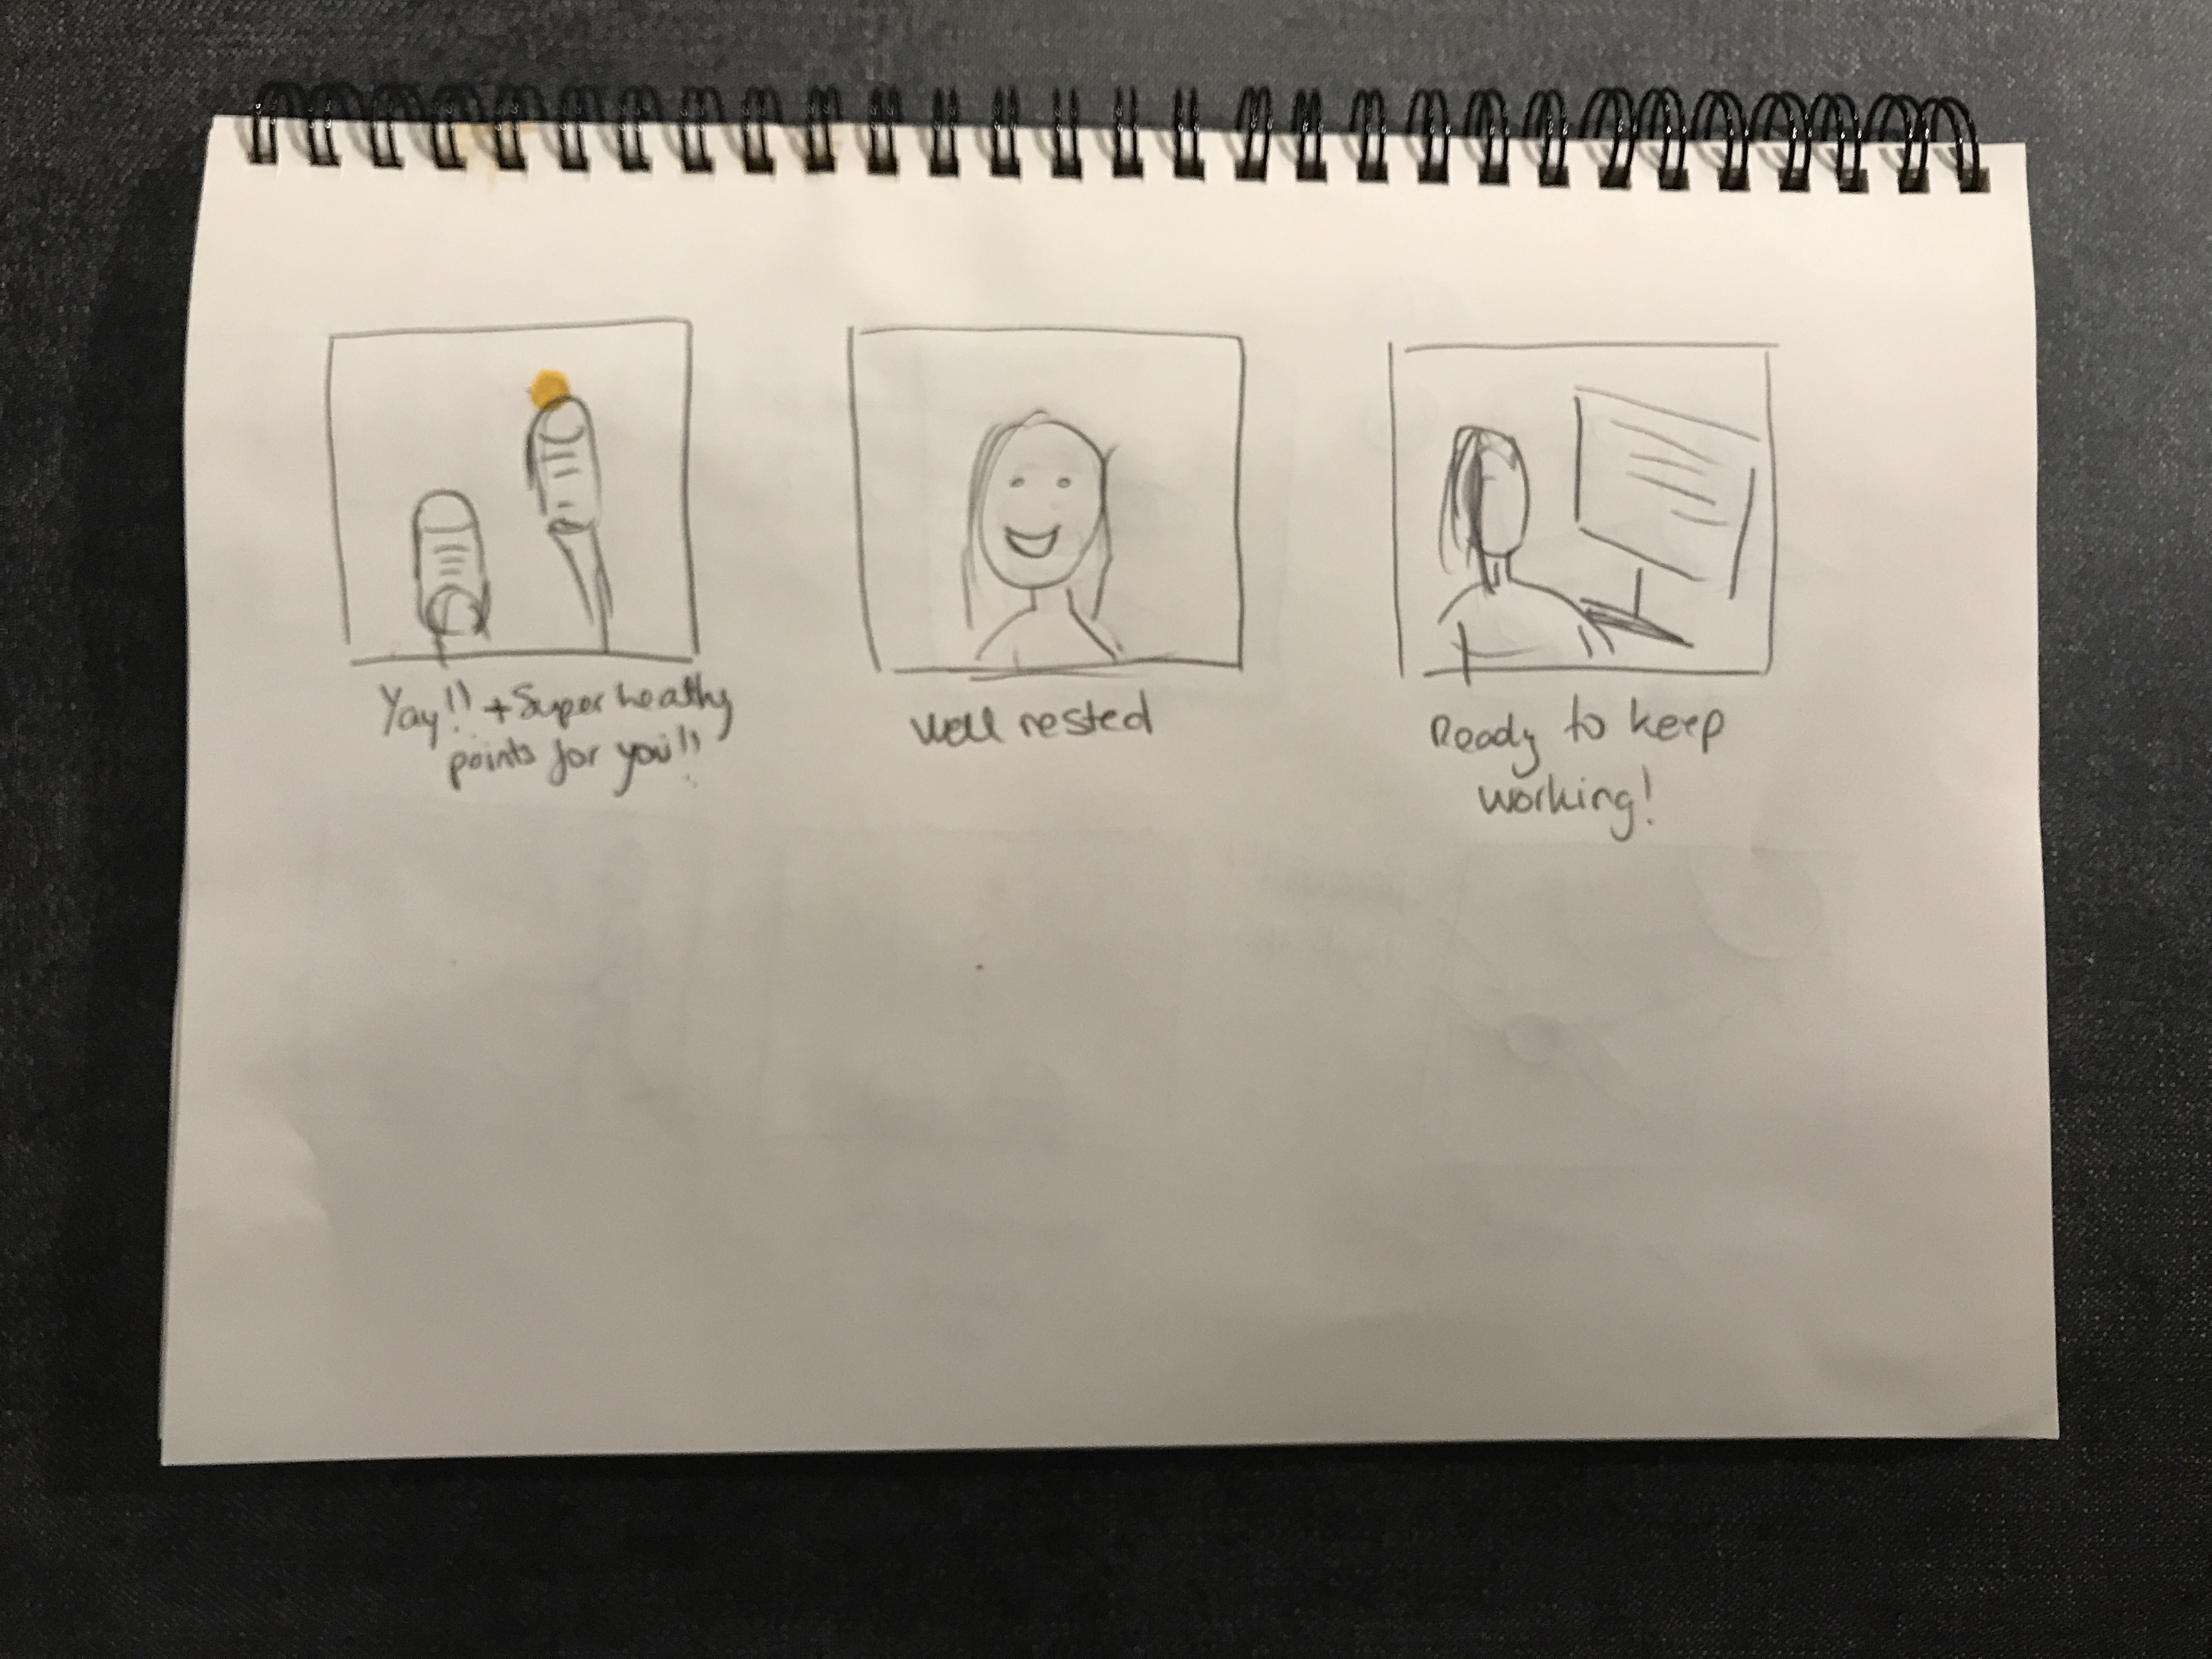 Yay!! + Super healthy
points for you!!
Well rested
Ready to keep
working!